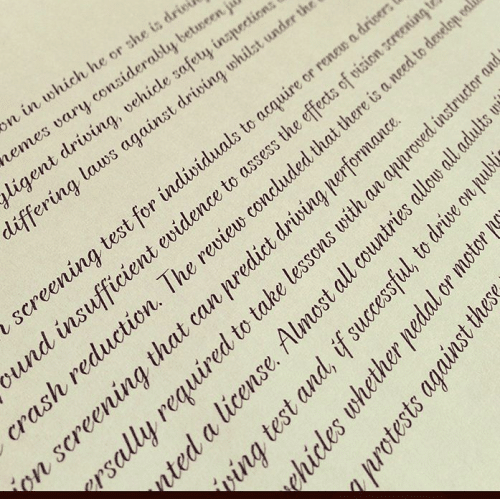 on in which he or she is driving
hemes vary considerably between
gligent driving, vehicle safety inspections
differing laws against driving whilst under the
screening test for individuals to acquire or renew a drivers
ound insufficient evidence to assess the effects of vision screening
crash reduction. The review concluded that there is a need to develop
ion screening that can predict driving performance.
ersally required to take lessons with an approved instructor and
nted a license. Almost all countries allow all adults
iving test and, if successful, to drive on public
vehicles whether pedal or motor
a protests against these